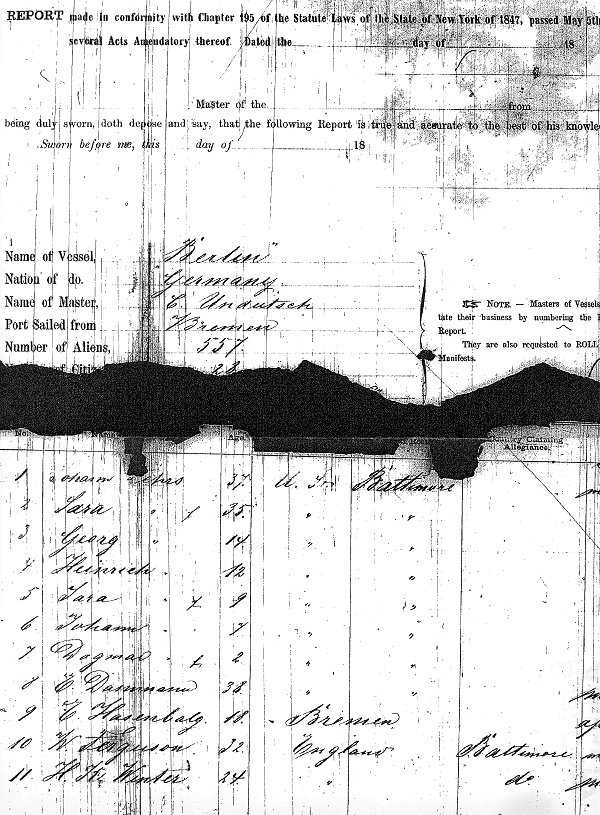 REPORT made in conformity with Chapter 195 of the Statute Laws of the State of New York of 1847, passed May 5th
several Acts Amendatory thereof. Dated the day of 18
Master of the from
being duly sworn, doth depose and say, that the following Report is true and accurate to the best of his knowle
Sworn before me, this day of 18
Name of Vessel, "Berlin"
Nation of do. Germany
Name of Master, C. Undütsch
Port Sailed from Bremen
Number of Aliens, 557
NOTE. — Masters of Vessels
tate their business by numbering the
Report.
They are also requested to ROLL
Manifests.
of Citiz 28
No. Age. Country Claiming
Allegiance.
1 Johann 37 U. St. Baltimore
2 Sara " f 35 " "
3 Georg " 14 " "
4 Heinrich " 12 " "
5 Sara " f 9 " "
6 Johann " 7 " "
7 Dagmar " f 2 " "
8 E. Dammann 38 " "
9 E. Hasenbalg 18 Bremen
10 W. Ferguson 32 England Baltimore
11 H. Fr. Winter 24 " do